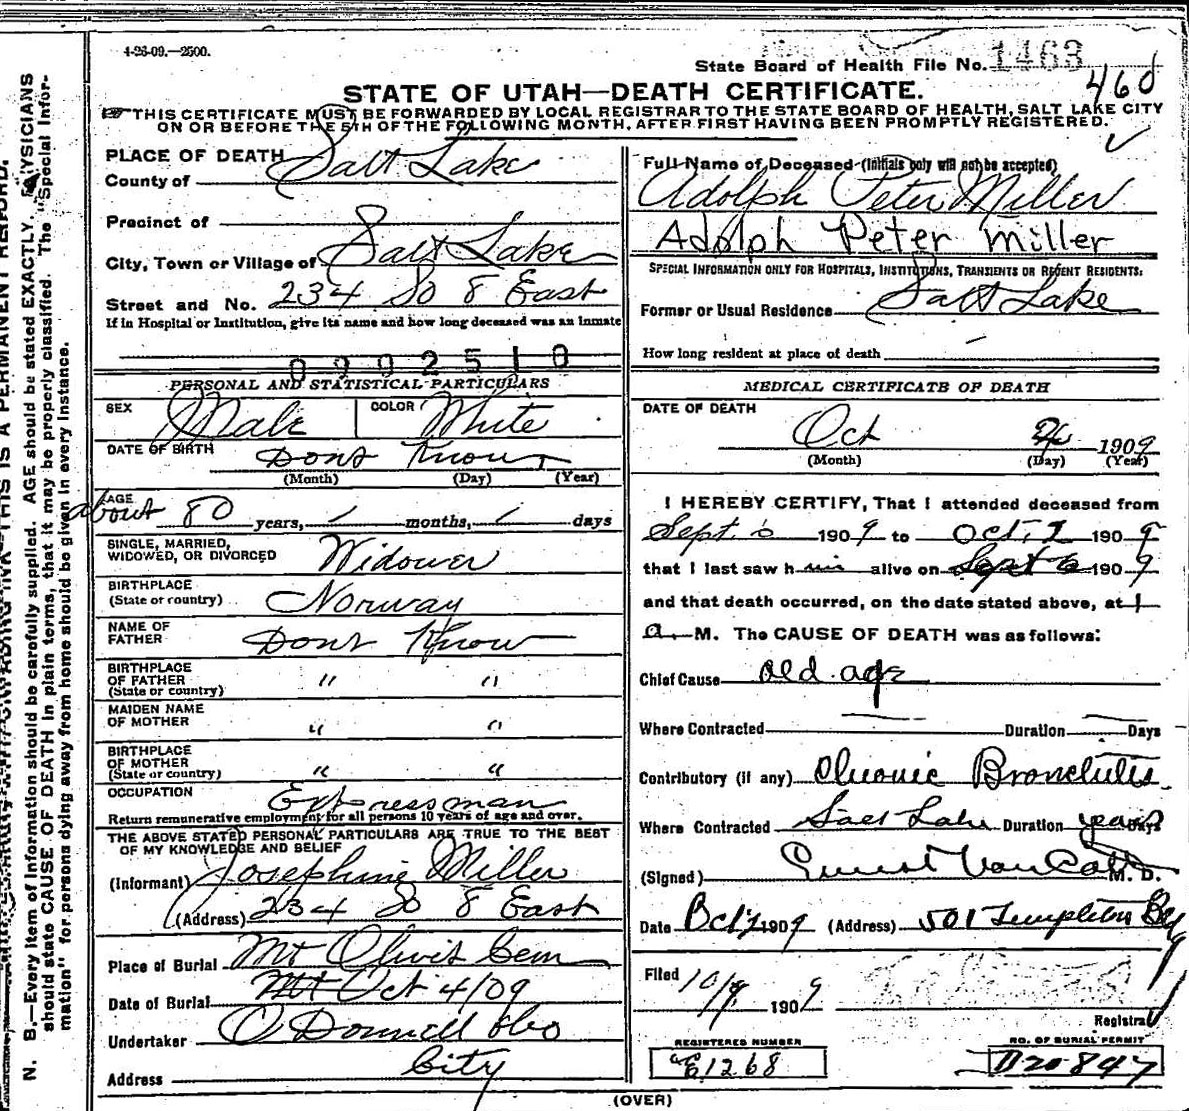 4-26-09.—2500.
State Board of Health File No. 1463
460
STATE OF UTAH—DEATH CERTIFICATE.
THIS CERTIFICATE MUST BE FORWARDED BY LOCAL REGISTRAR TO THE STATE BOARD OF HEALTH, SALT LAKE CITY
ON OR BEFORE THE 5TH OF THE FOLLOWING MONTH, AFTER FIRST HAVING BEEN PROMPTLY REGISTERED.
PLACE OF DEATH
County of Salt Lake
Precinct of
City, Town or Village of Salt Lake
Street and No. 234 So 8 East
If in Hospital or Institution, give its name and how long deceased was an inmate
PERSONAL AND STATISTICAL PARTICULARS
SEX Male COLOR White
DATE OF BIRTH Dont Know
(Month) (Day) (Year)
AGE about 80 years, months, days
SINGLE, MARRIED,
WIDOWED, OR DIVORCED Widower
BIRTHPLACE
(State or country) Norway
NAME OF
FATHER Dont Know
BIRTHPLACE
OF FATHER " "
(State or country)
MAIDEN NAME
OF MOTHER " "
BIRTHPLACE
OF MOTHER
(State or country) " "
OCCUPATION Expressman
Return remunerative employment for all persons 10 years of age and over.
THE ABOVE STATED PERSONAL PARTICULARS ARE TRUE TO THE BEST
OF MY KNOWLEDGE AND BELIEF
(Informant) Josephine Miller
(Address) 234 So 8 East
Place of Burial Mt Olivit Cem
Date of Burial Oct 4/09
Undertaker O Donnell & Co
Address City
Full Name of Deceased (Initials only will not be accepted)
Adolph Peter Miller
Adolph Peter Miller
SPECIAL INFORMATION ONLY FOR HOSPITALS, INSTITUTIONS, TRANSIENTS OR RECENT RESIDENTS:
Former or Usual Residence Salt Lake
How long resident at place of death
MEDICAL CERTIFICATE OF DEATH
DATE OF DEATH
Oct 1909
(Month) (Day) (Year)
I HEREBY CERTIFY, That I attended deceased from
Sept. 6 1909 to Oct. 1909
that I last saw him alive on Sept 6 1909
and that death occurred, on the date stated above, at 1
a. M. The CAUSE OF DEATH was as follows:
Chief Cause old age
Where Contracted Duration Days
Contributory (if any) Chronic Bronchitis
Where Contracted Salt Lake Duration years Days
(Signed) Ernest Van Cott M. D.
Date Oct 1909 (Address) 501 Templeton Bldg
Filed 10/9 1909
Registrar
REGISTERED NUMBER
E1268
NO. OF BURIAL PERMIT
D20847
(OVER)
N. B.—Every item of information should be carefully supplied. AGE should be stated EXACTLY. PHYSICIANS
should state CAUSE OF DEATH in plain terms, that it may be properly classified. The "Special Infor-
mation" for persons dying away from home should be given in every instance.